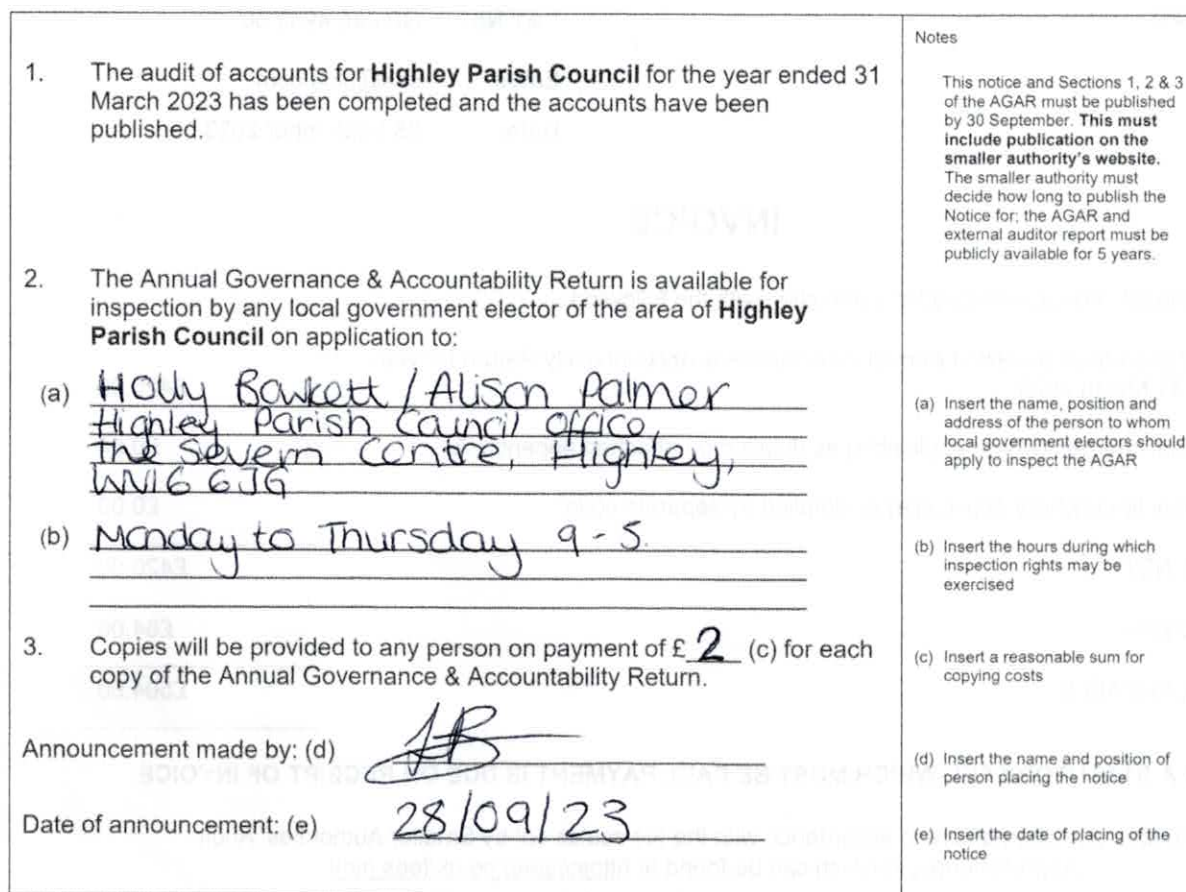 1. The audit of accounts for Highley Parish Council for the year ended 31
March 2023 has been completed and the accounts have been
published.
2. The Annual Governance & Accountability Return is available for
inspection by any local government elector of the area of Highley
Parish Council on application to:
(a) Holly Bowkett / Alison Palmer
Highley Parish Council Office,
The Severn Centre, Highley,
WV16 6JG
(b) Monday to Thursday 9 - 5.
3. Copies will be provided to any person on payment of £ 2 (c) for each
copy of the Annual Governance & Accountability Return.
Announcement made by: (d)
Date of announcement: (e) 28/09/23
Notes
This notice and Sections 1, 2 & 3
of the AGAR must be published
by 30 September. This must
include publication on the
smaller authority's website.
The smaller authority must
decide how long to publish the
Notice for; the AGAR and
external auditor report must be
publicly available for 5 years.
(a) Insert the name, position and
address of the person to whom
local government electors should
apply to inspect the AGAR
(b) Insert the hours during which
inspection rights may be
exercised
(c) Insert a reasonable sum for
copying costs
(d) Insert the name and position of
person placing the notice
(e) Insert the date of placing of the
notice